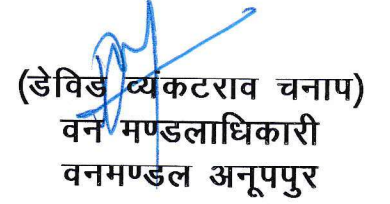 (डेविड व्यंकटराव चनाप)
वन मण्डलाधिकारी
वनमण्डल अनूपपुर